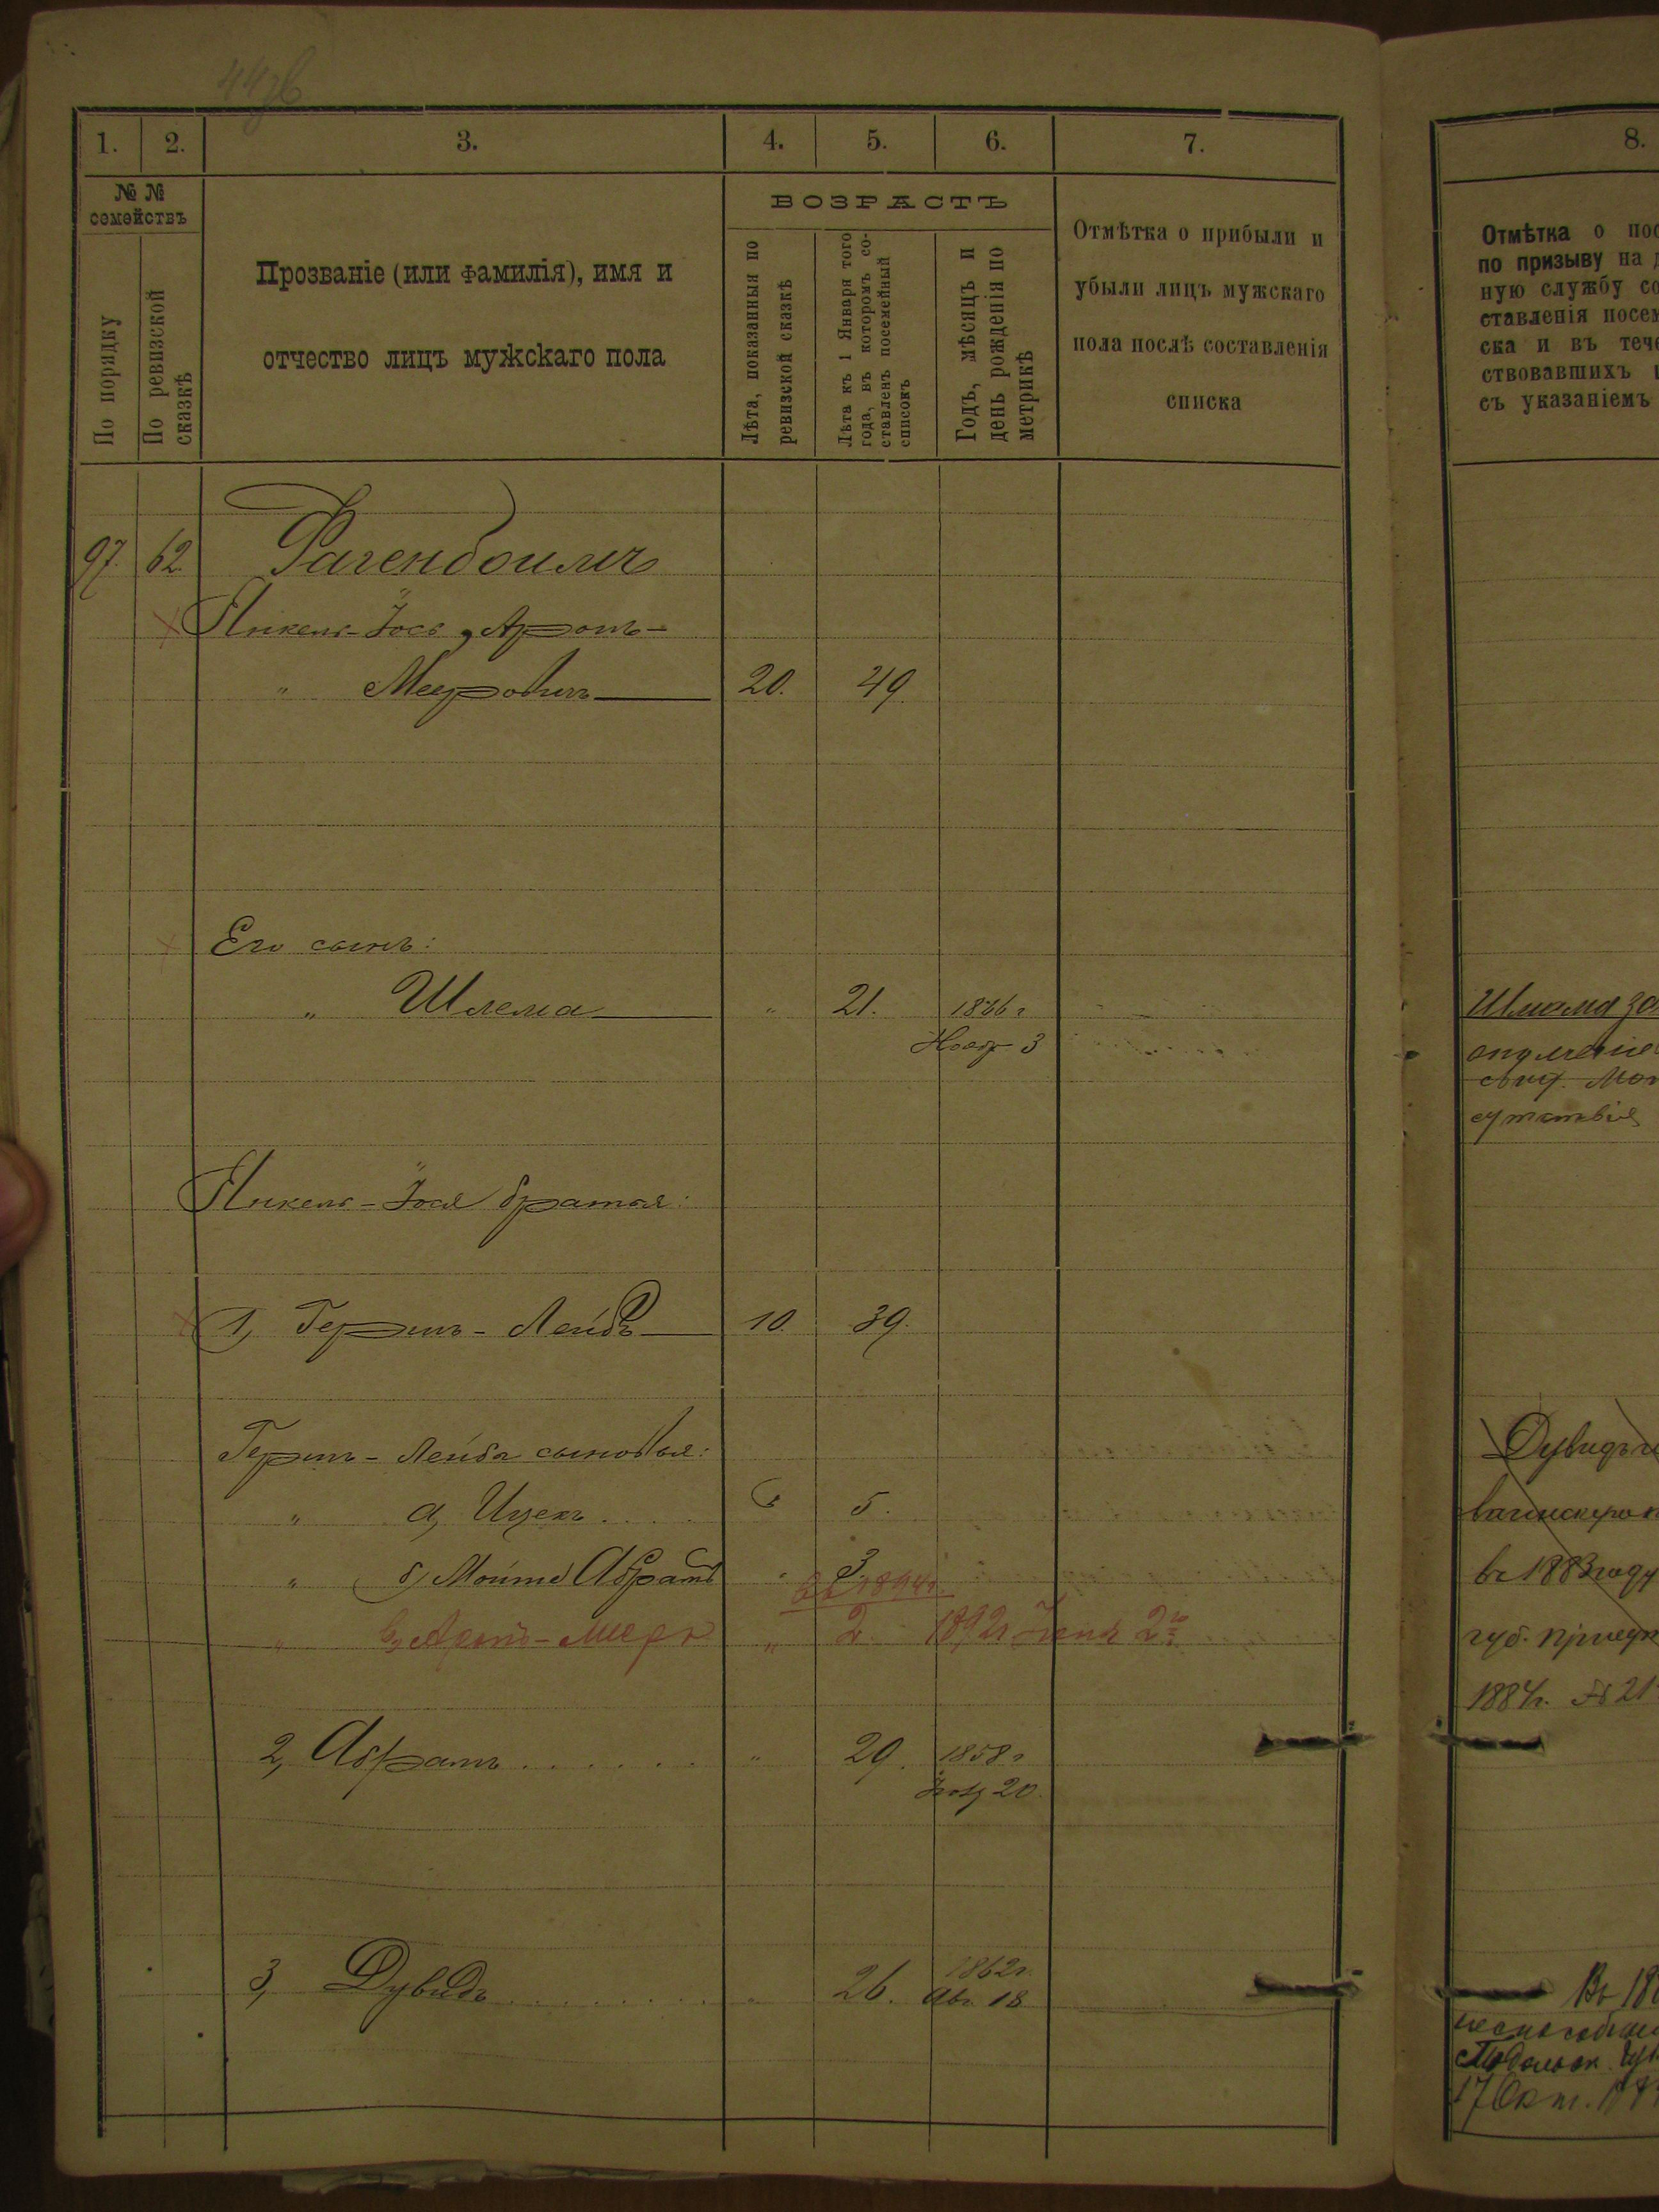 1. 2. 3. 4. 5. 6. 7.
№ №
семействъ
По порядку
По ревизской
сказкѣ
Прозваніе (или фамилія), имя и
отчество лицъ мужскаго пола
ВОЗРАСТЪ
Лѣта, показанныя по
ревизской сказкѣ
Лѣта къ 1 Января того
года, въ которомъ со-
ставленъ посемейный
списокъ
Годъ, мѣсяцъ и
день рожденія по
метрикѣ
Отмѣтка о прибыли и
убыли лицъ мужскаго
пола послѣ составленія
списка
97. 62 Фагенбоимъ
Янкель-Іось, Аронъ-
" Меировичъ 20. 49.
Его сынъ:
" Шлема " 21. 1866 г
Нояб 3
Янкель-Іося братья:
1, Гершъ-Лейбъ 10. 39.
Гершъ-Лейба сыновья:
" а, Ицекъ.... 5.
" б, Абрамъ " 3.
въ 1894г.
" в, Аронъ-Мееръ " 2. 1892г. 2го
2, Абрамъ...... " 29. 1858 г
20.
3, Дувидъ........ 26. 1862г.
Авг. 18
8.
Отмѣтка о пос
по призыву на д
ную службу со
ставленія посем
ска и въ тече
ствовавшихъ
съ указаніемъ
Шлема за
ополченіе
сутствія
Дувидъ
въ 1883 году
губ. присут
1884г. № 21
Въ 18
Подольск.
17 Окт.